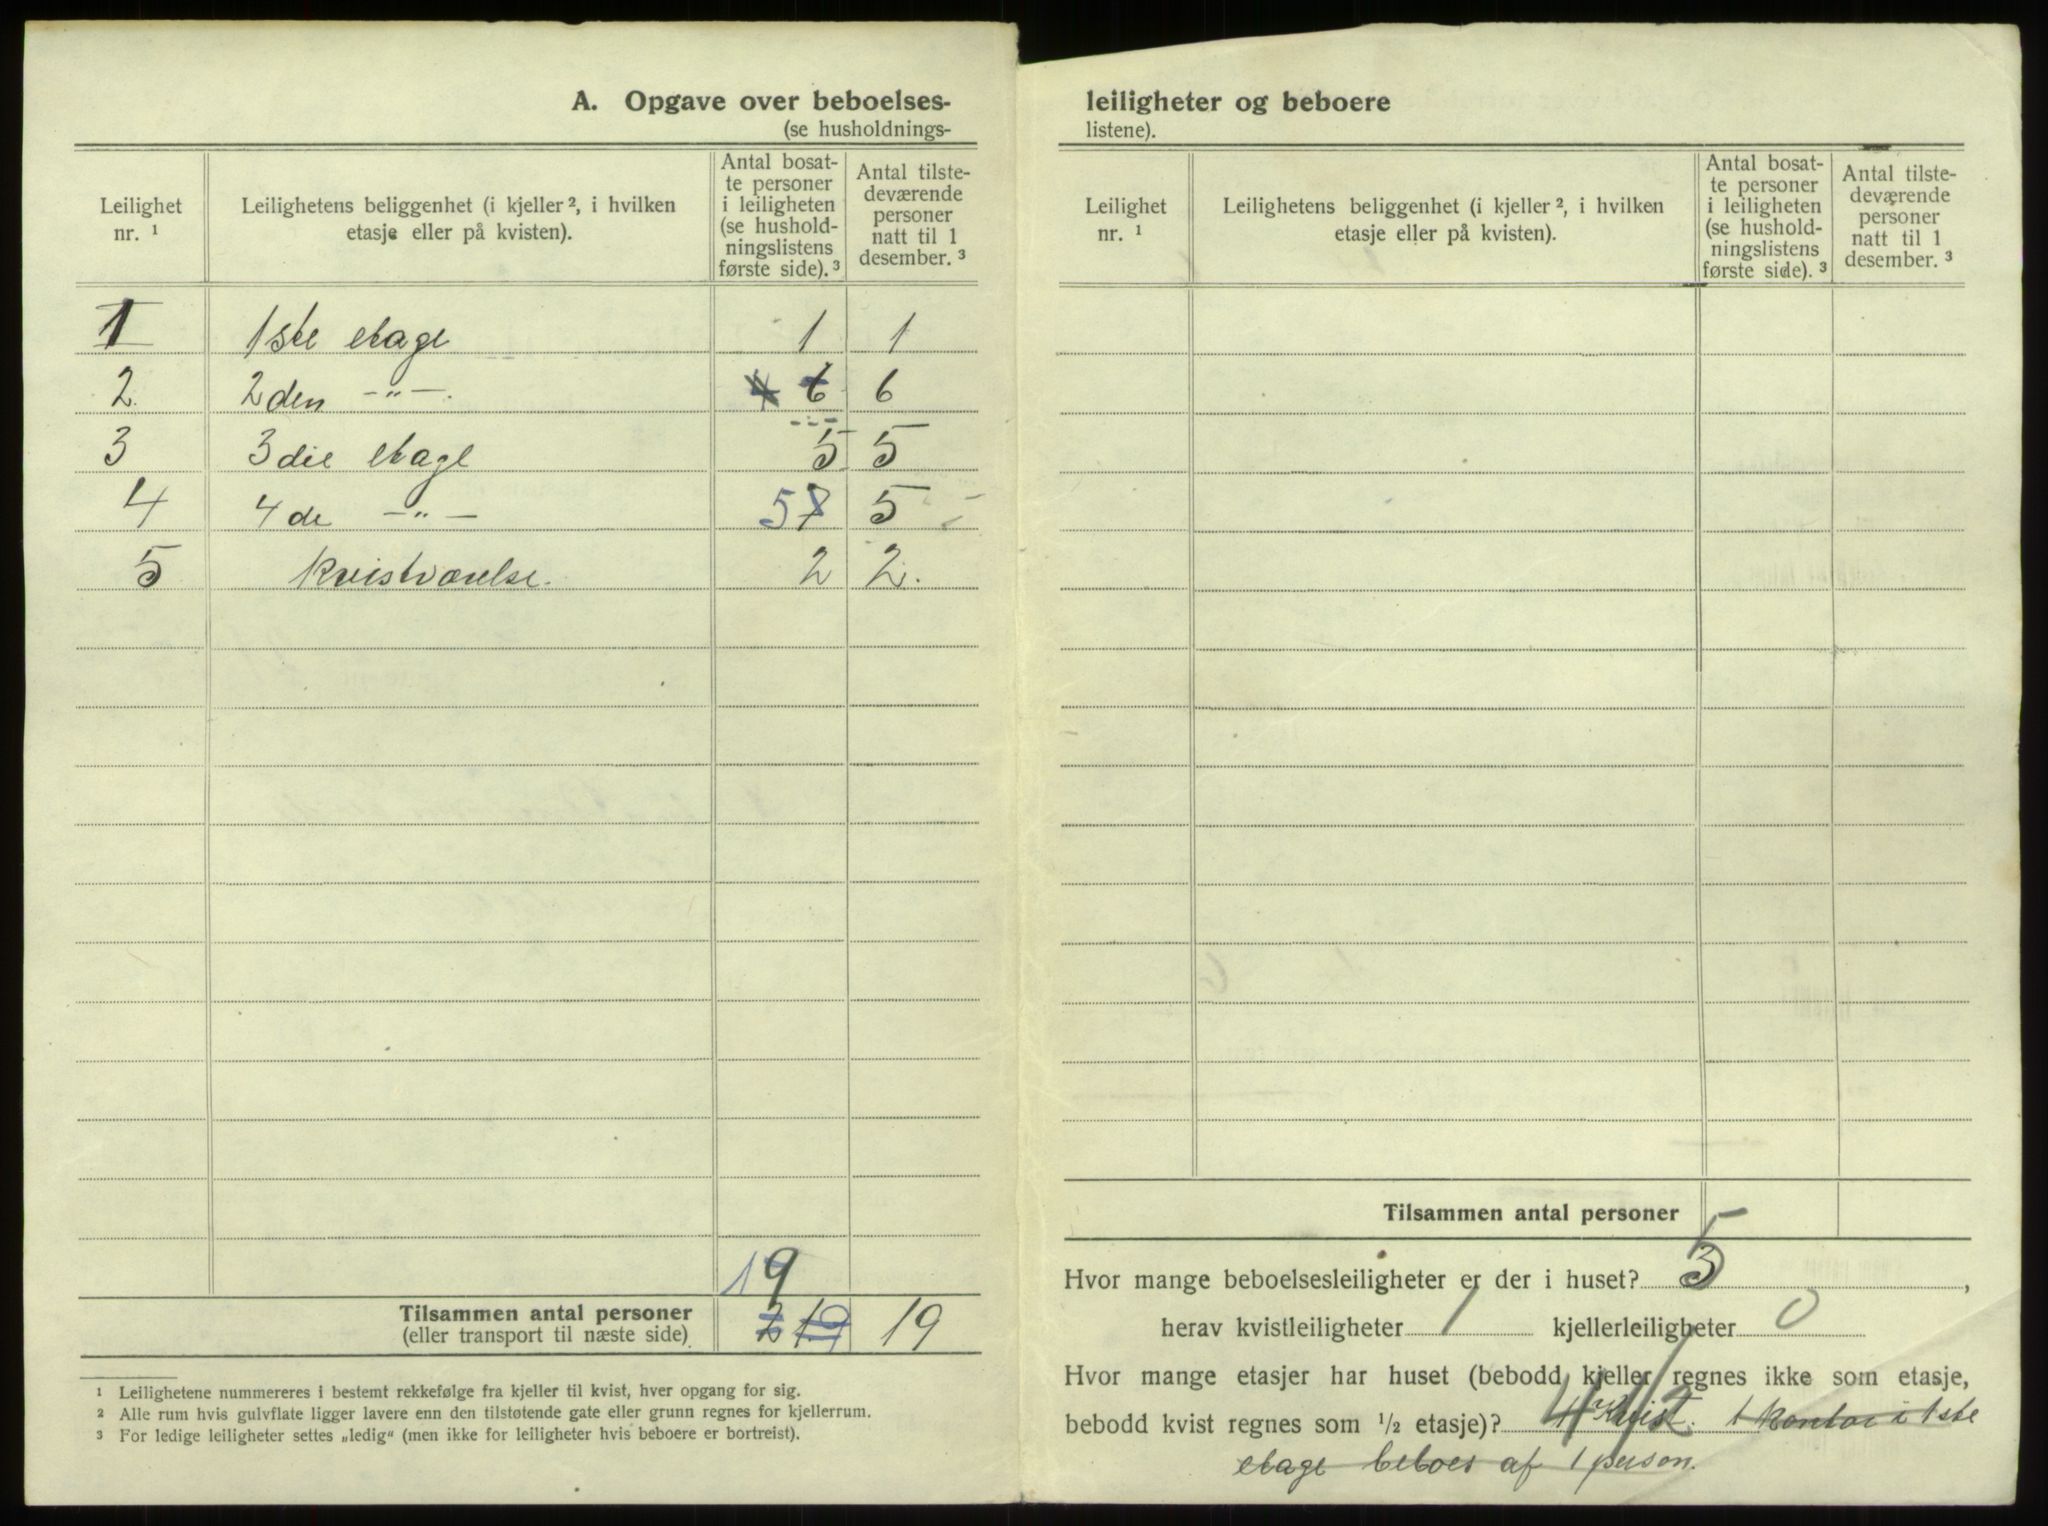 A. Opgave over beboelses-
(se husholdnings-
Leilighet nr. ¹
Leilighetens beliggenhet (i kjeller ², i hvilken etasje eller på kvisten).
Antal bosat-
te personer
i leiligheten
(se hushold-
ningslistens
første side). ³
Antal tilste-
deværende
personer
natt til 1
desember. ³
1 1ste etage 1 1
2 2den —„— 6 6
3 3die etage 5 5
4 4de —„— 5 7 5
5 Kvistværelse. 2 2.
19
Tilsammen antal personer 2 19 19
(eller transport til næste side)
¹ Leilighetene nummereres i bestemt rekkefølge fra kjeller til kvist, hver opgang for sig.
² Alle rum hvis gulvflate ligger lavere enn den tilstøtende gate eller grunn regnes for kjellerrum.
³ For ledige leiligheter settes „ledig“ (men ikke for leiligheter hvis beboere er bortreist).
leiligheter og beboere
listene).
Leilighet
nr. ¹
Leilighetens beliggenhet (i kjeller ², i hvilken
etasje eller på kvisten).
Antal bosat-
te personer
i leiligheten
(se hushold-
ningslistens
første side). ³
Antal tilste-
deværende
personer
natt til 1
desember. ³
Tilsammen antal personer
Hvor mange beboelsesleiligheter er der i huset? 5,
herav kvistleiligheter 1 kjellerleiligheter 0
Hvor mange etasjer har huset (bebodd kjeller regnes ikke som etasje,
bebodd kvist regnes som ½ etasje)? 4 1/2 Kvist. 1 kontor i 1ste
etage beboes af 1 person.